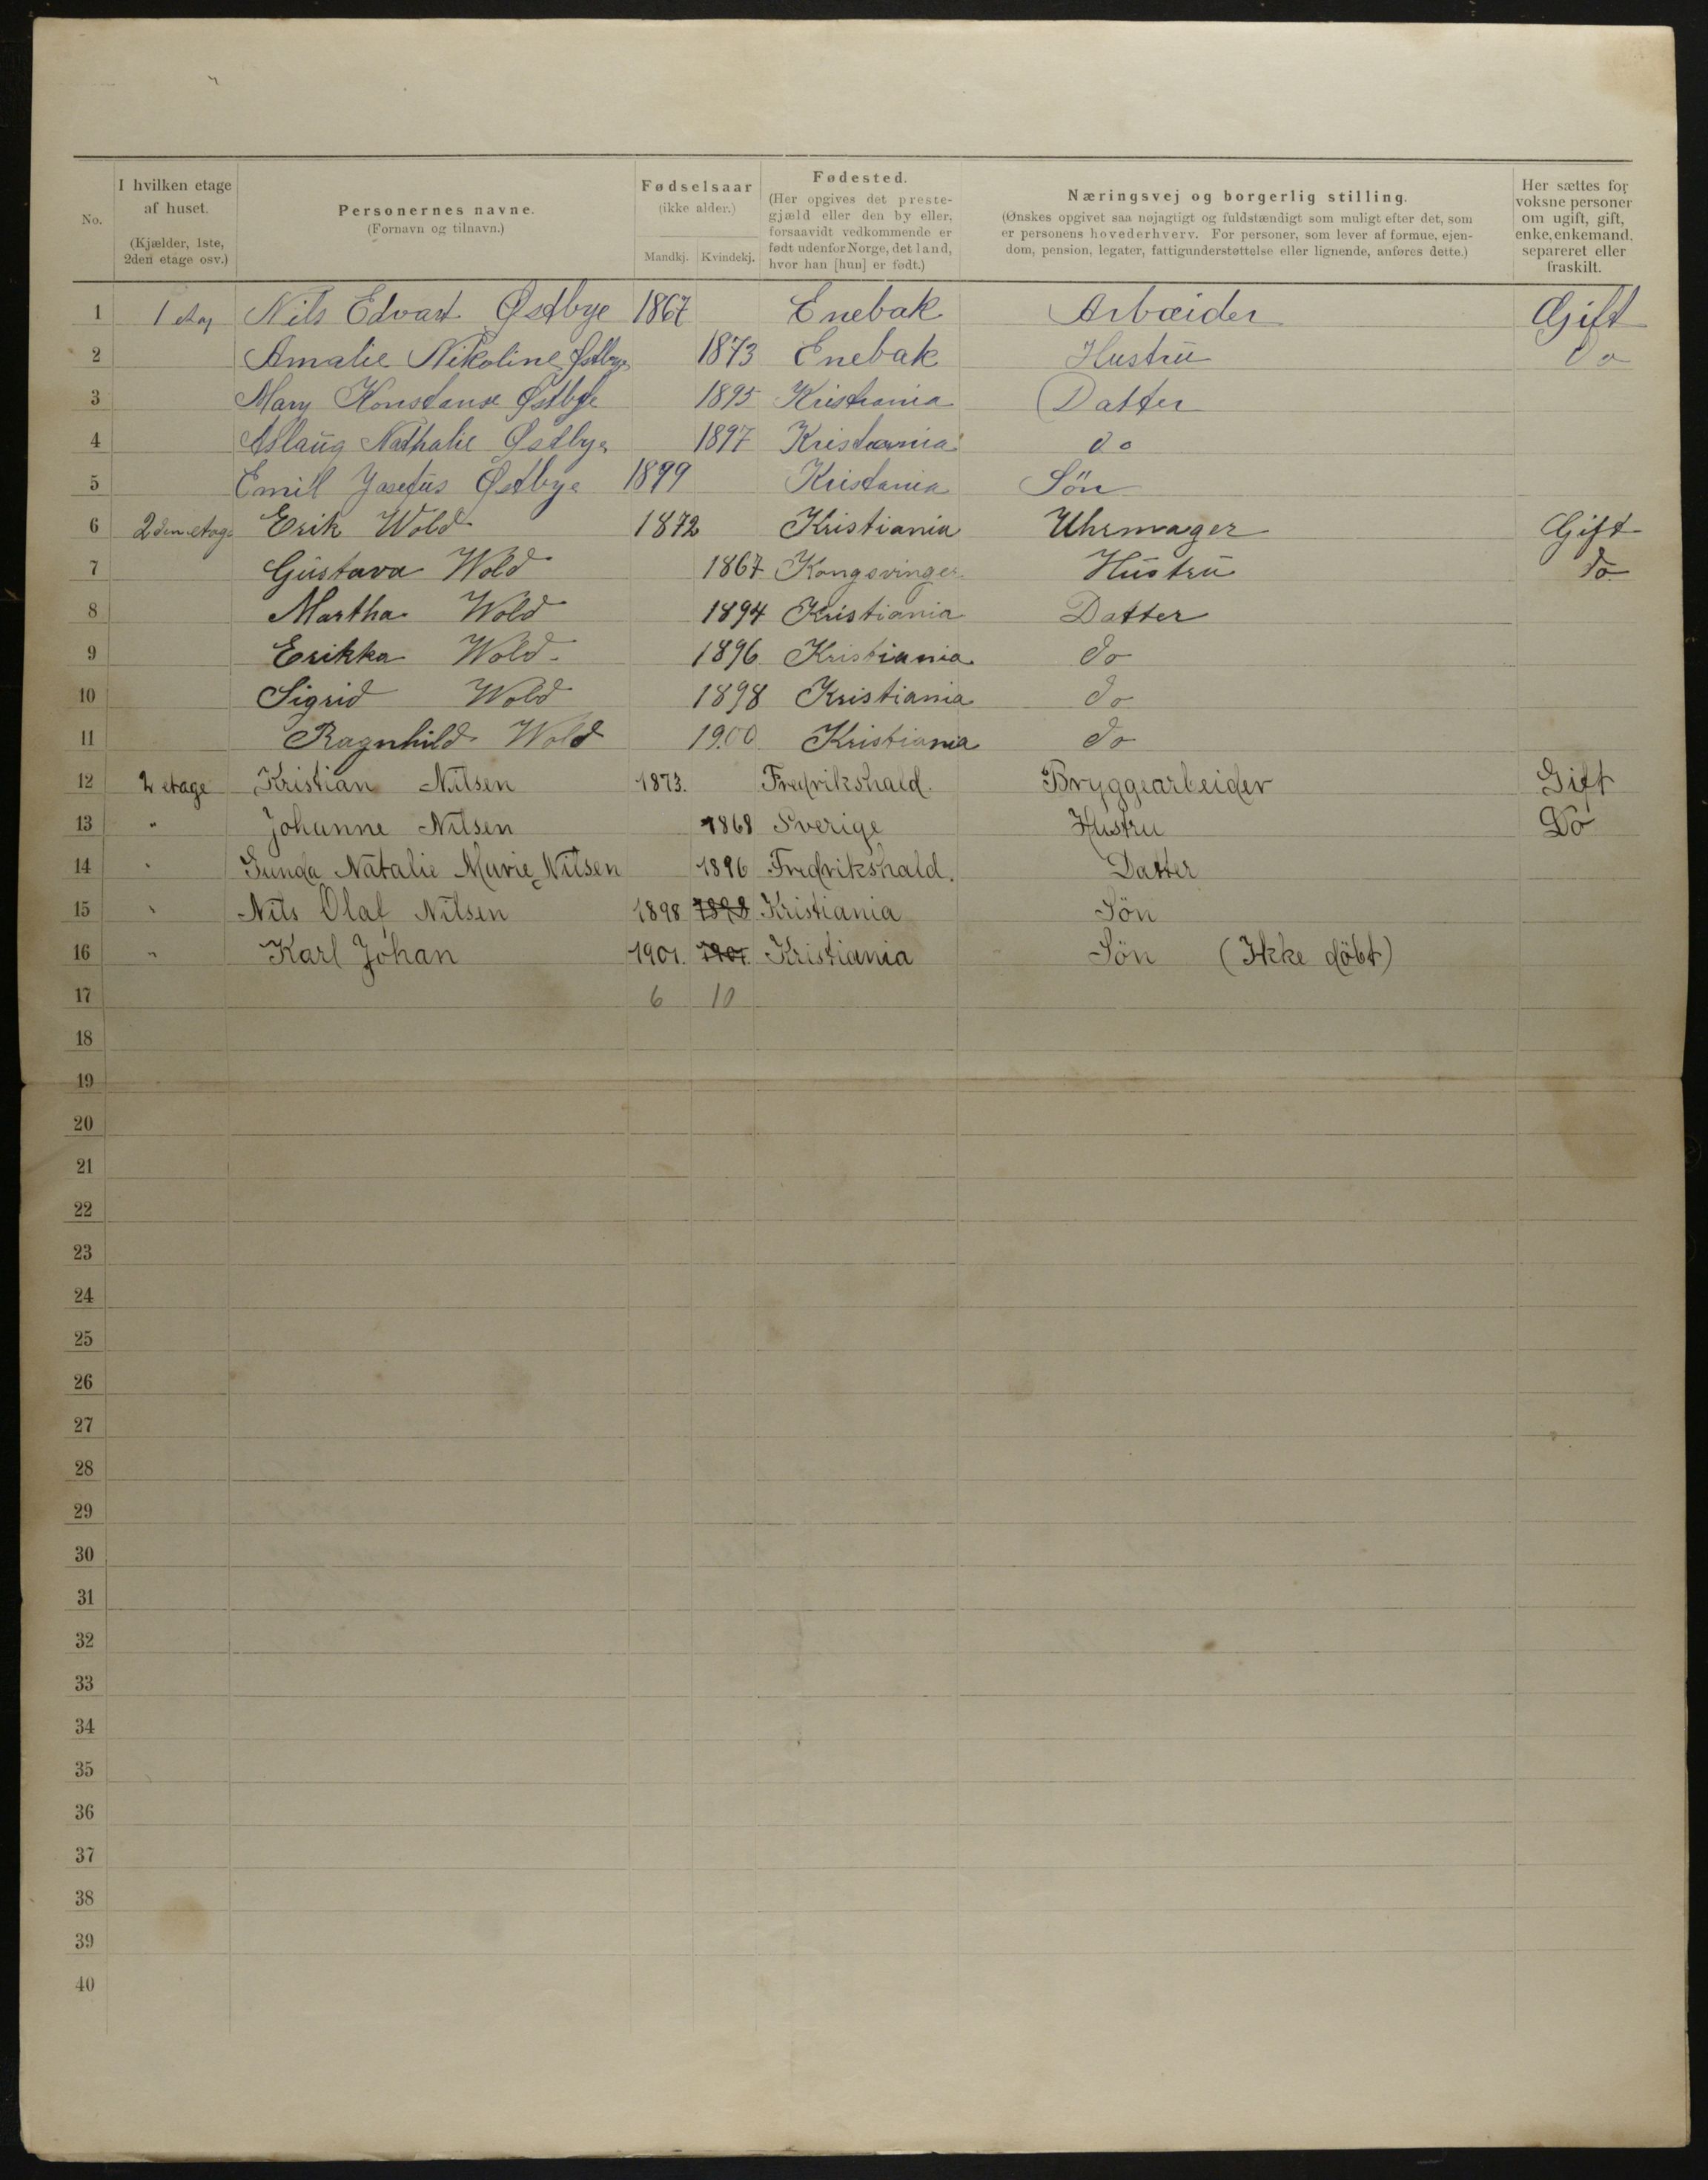 No.
I hvilken etage af huset. (Kjælder, 1ste, 2den etage osv.)
Personernes navne. (Fornavn og tilnavn.)
Fødselsaar (ikke alder.) Mandkj. Kvindekj.
Fødested. (Her opgives det prestegjæld eller den by eller, forsaavidt vedkommende er født udenfor Norge, det land, hvor han [hun] er født.)
Næringsvej og borgerlig stilling. (Ønskes opgivet saa nøjagtigt og fuldstændigt som muligt efter det, som er personens hovederhverv. For personer, som lever af formue, ejendom, pension, legater, fattigunderstøttelse eller lignende, anføres dette.)
Her sættes for voksne personer om ugift, gift, enke, enkemand, separeret eller fraskilt.
1 1 etag Nils Edvart Østbye 1867 Enebak Arbæider Gift
2 Amalie Nikoline Østbye 1873 Enebak Hustru Do
3 Mary Konstanse Østbye 1895 Kristiania Datter
4 Aslaug Nathalie Østbye 1897 Kristiania do
5 Emil Josefus Østbye 1899 Kristania Sön
6 2den etage Erik Wold 1872 Kristiania Uhrmager Gift
7 Gustava Wold 1867 Kongsvinger Hustru do
8 Martha Wold 1894 Kristiania Datter
9 Erikka Wold 1896 Kristiania do
10 Sigrid Wold 1898 Kristiania do
11 Ragnhild Wold 1900 Kristiania do
12 2 etage Kristian Nilsen 1873. Fredrikshald. Bryggearbeider Gift
13 " Johanne Nilsen 1868 Sverige Hustru Do
14 " Gunda Natalie Marie Nilsen 1896 Fredrikshald. Datter
15 " Nils Olaf Nilsen 1898 1898 Kristiania Sön
16 " Karl Johan 1901. 1901. Kristiania Sön (Ikke döbt)
17 6 10
18
19
20
21
22
23
24
25
26
27
28
29
30
31
32
33
34
35
36
37
38
39
40